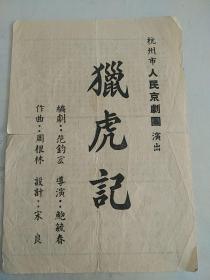 杭州市人民京劇團 演出
獵虎記
編劇：范鈞宏 導演：鮑毓春
作曲：周根林 設計：宋良